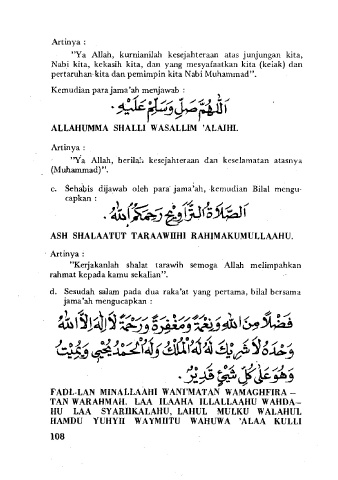 Artinya :
"Ya Allah, kurnianilah kesejahteraan atas junjungan kita,
Nabi kita, kekasih kita, dan yang mesyafaatkan kita (kelak) dan
pertaruhan kita dan pemimpin kita Nabi Muhammad".
Kemudian para jama'ah menjawab :
اَللّٰهُمَّ صَلِّ وَسَلِّمْ عَلَيْهِ.
ALLAHUMMA SHALLI WASALLIM 'ALAIHI.
Artinya :
"Ya Allah, berilah kesejahteraan dan keselamatan atasnya
(Muhammad)".
c. Sehabis dijawab oleh para jama'ah, kemudian Bilal mengu-
capkan :
اَلصَّلَاةُ التَّرَاوِيْحِ رَحِمَكُمُ اللهُ.
ASH SHALAATUT TARAAWIIHI RAHIMAKUMULLAAHU.
Artinya :
"Kerjakanlah shalat tarawih semoga Allah melimpahkan
rahmat kepada kamu sekalian".
d. Sesudah salam pada dua raka'at yang pertama, bilal bersama
jama'ah mengucapkan :
فَضْلًا مِنَ اللهِ وَنِعْمَةً وَمَغْفِرَةً وَرَحْمَةً لَا إِلٰهَ إِلَّا اللهُ
وَحْدَهُ لَا شَرِيْكَ لَهُ لَهُ الْمُلْكُ وَلَهُ الْحَمْدُ يُحْيِيْ وَيُمِيْتُ
وَهُوَ عَلٰى كُلِّ شَيْئٍ قَدِيْرٌ.
FADL-LAN MINALLAAHI WANI'MATAN WAMAGHFIRA -
TAN WARAHMAH. LAA ILAAHA ILLALLAAHU WAHDA-
HU LAA SYARIIKALAHU, LAHUL MULKU WALAHUL
HAMDU YUHYII WAYMIITU WAHUWA 'ALAA KULLI
108